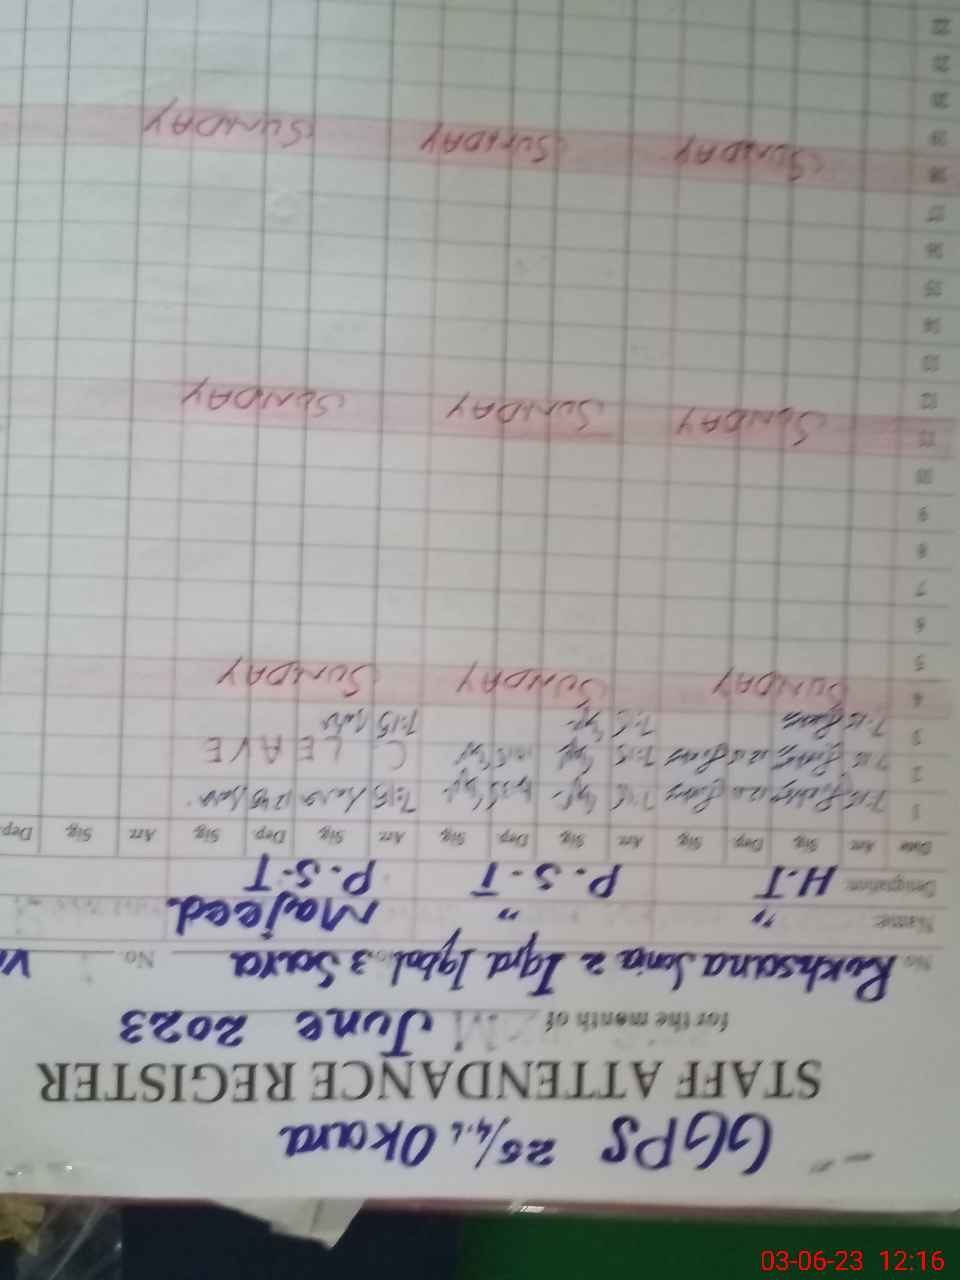 GGPS 25/4.L Okara
STAFF ATTENDANCE REGISTER
for the month of June 2023
No. Rukhsana Sonia 2 Iqra Iqbal No. 3 Saira No.
Name: " " Majeed
Designation: H.T P.S.T P.S.T
Date Arr. Sig. Dep. Sig. Arr. Sig. Dep. Sig. Arr. Sig. Dep. Sig. Arr. Sig. Dep.
1 7:15 7:15 7:15 12:45
2 7:15 12:15 7:15 C. LEAVE
3 7:15 7:15 7:15
4 SUNDAY SUNDAY SUNDAY
5
6
7
8
9
10
11 SUNDAY SUNDAY SUNDAY
12
13
14
15
16
17
18 SUNDAY SUNDAY SUNDAY
19
20
21
22
03-06-23 12:16